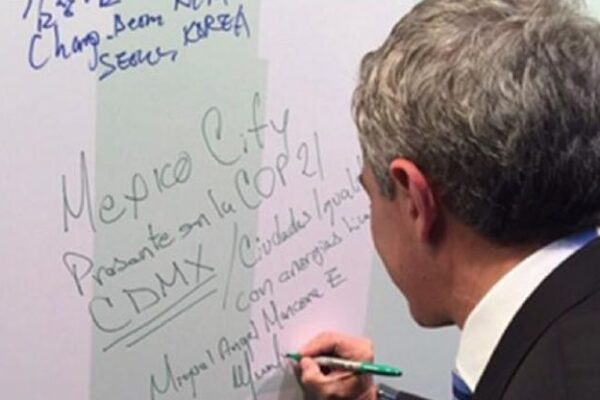 Chang-Beom
SEOUL, KOREA
Mexico City
Presente en la COP21
CDMX / Ciudades Igual
con energías
Miguel Angel Mancera E